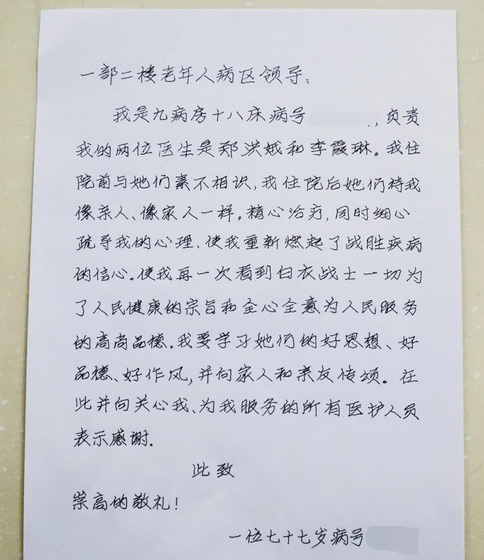 一部二楼老年人病区领导：
我是九病房十八床病号，负责
我的两位医生是郑洪娥和李霞琳。我住
院前与她们素不相识，我住院后她们待我
像亲人、像家人一样。精心治疗，同时细心
疏导我的心理，使我重新燃起了战胜疾病
的信心。使我再一次看到白衣战士一切为
了人民健康的宗旨和全心全意为人民服务
的高尚品德。我要学习她们的好思想、好
品德、好作风，并向家人和亲友传颂。在
此并向关心我、为我服务的所有医护人员
表示感谢。
此致
崇高的敬礼！
一位七十七岁病号